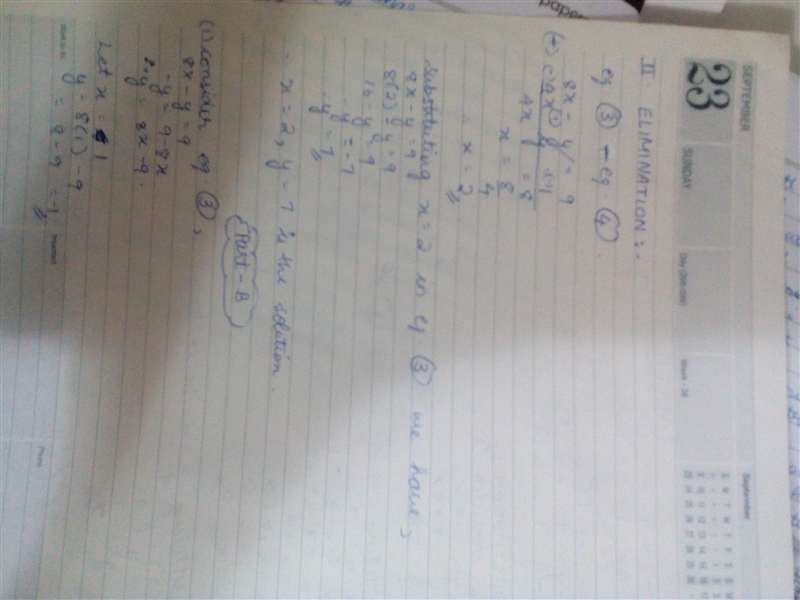 SEPTEMBER
23
SUNDAY
Week 38
September
II ELIMINATION :-
eq ③ - eq. ④.
8x - y = 9
4x = 8
x = 8
4
x = 2
Substituting x = 2 in eq ③ we have,
8x - y = 9
8(2) - y = 9
16 - y = 9
-y = -7
y = 7
∴ x = 2, y = 7 is the solution.
Part - B
(1) Consider eq ③,
8x - y = 9
-y = 9 - 8x
y = 8x - 9.
Let x = 1
y = 8(1) - 9
= 8 - 9 = -1
Phone